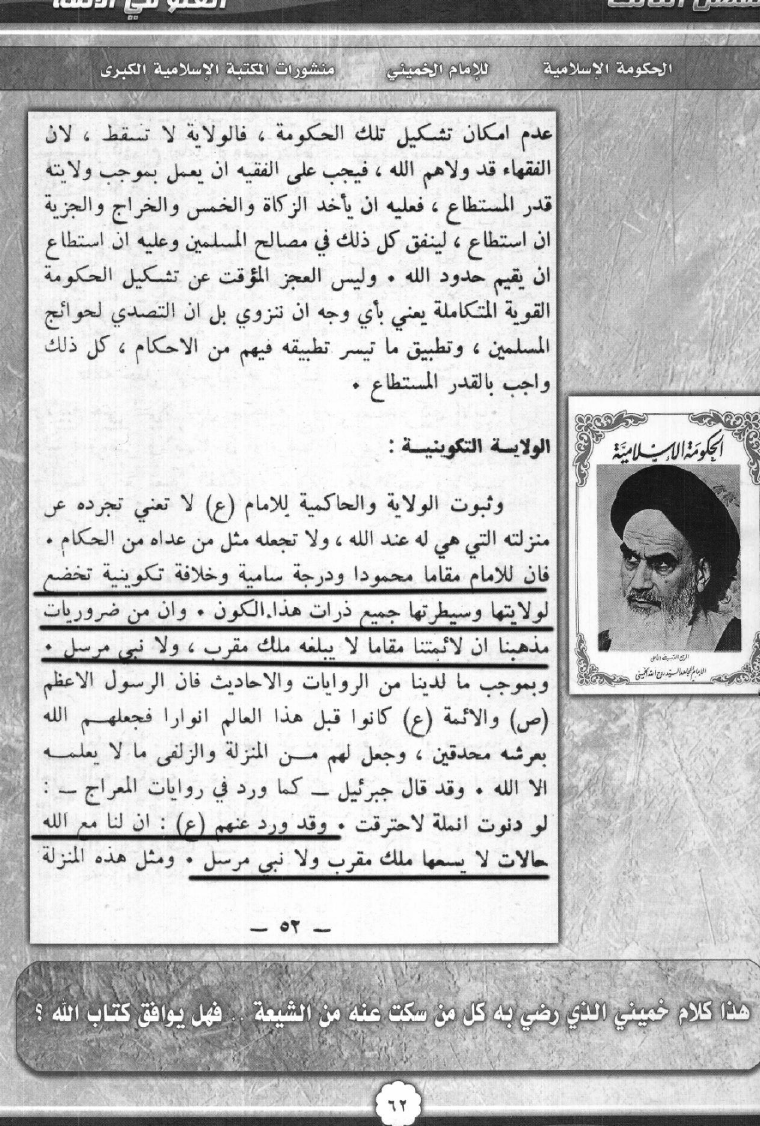 الفصل الثالث
الغلو في الأئمة
الحكومة الإسلامية للإمام الخميني منشورات المكتبة الاسلامية الكبرى
عدم امكان تشكيل تلك الحكومة ، فالولاية لا تسقط ، لان
الفقهاء قد ولاهم الله ، فيجب على الفقيه ان يعمل بموجب ولايته
قدر المستطاع ، فعليه ان يأخد الزكاة والخمس والخراج والجزية
ان استطاع ، لينفق كل ذلك في مصالح المسلمين وعليه ان استطاع
ان يقيم حدود الله ٠ وليس العجز المؤقت عن تشكيل الحكومة
القوية المتكاملة يعني بأي وجه ان ننزوي بل ان التصدي لحوائج
المسلمين ، وتطبيق ما تيسر تطبيقه فيهم من الاحكام ، كل ذلك
واجب بالقدر المستطاع ٠
الولايـة التكوينيـة :
وثبوت الولاية والحاكمية للامام (ع) لا تعني تجرده عن
منزلته التي هي له عند الله ، ولا تجعله مثل من عداه من الحكام ٠
فان للامام مقاما محمودا ودرجة سامية وخلافة تكوينية تخضع
لولايتها وسيطرتها جميع ذرات هذا الكون ٠ وان من ضروريات
مذهبنا ان لائمتنا مقاما لا يبلغه ملك مقرب ، ولا نبي مرسل ٠
وبموجب ما لدينا من الروايات والاحاديث فان الرسول الاعظم
(ص) والائمة (ع) كانوا قبل هذا العالم انوارا فجعلهـم الله
بعرشه محدقين ، وجعل لهم مـن المنزلة والزلفى ما لا يعلمـه
الا الله ٠ وقد قال جبرئيل ــ كما ورد في روايات المعراج ــ :
لو دنوت انملة لاحترقت ٠ وقد ورد عنهم (ع) : ان لنا مع الله
حالات لا يسعها ملك مقرب ولا نبي مرسل ٠ ومثل هذه المنزلة
— ٥٢ —
الحكومة الإسلامية
هذا كلام خميني الذي رضي به كل من سكت عنه من الشيعة .. فهل يوافق كتاب الله ؟
٦٢